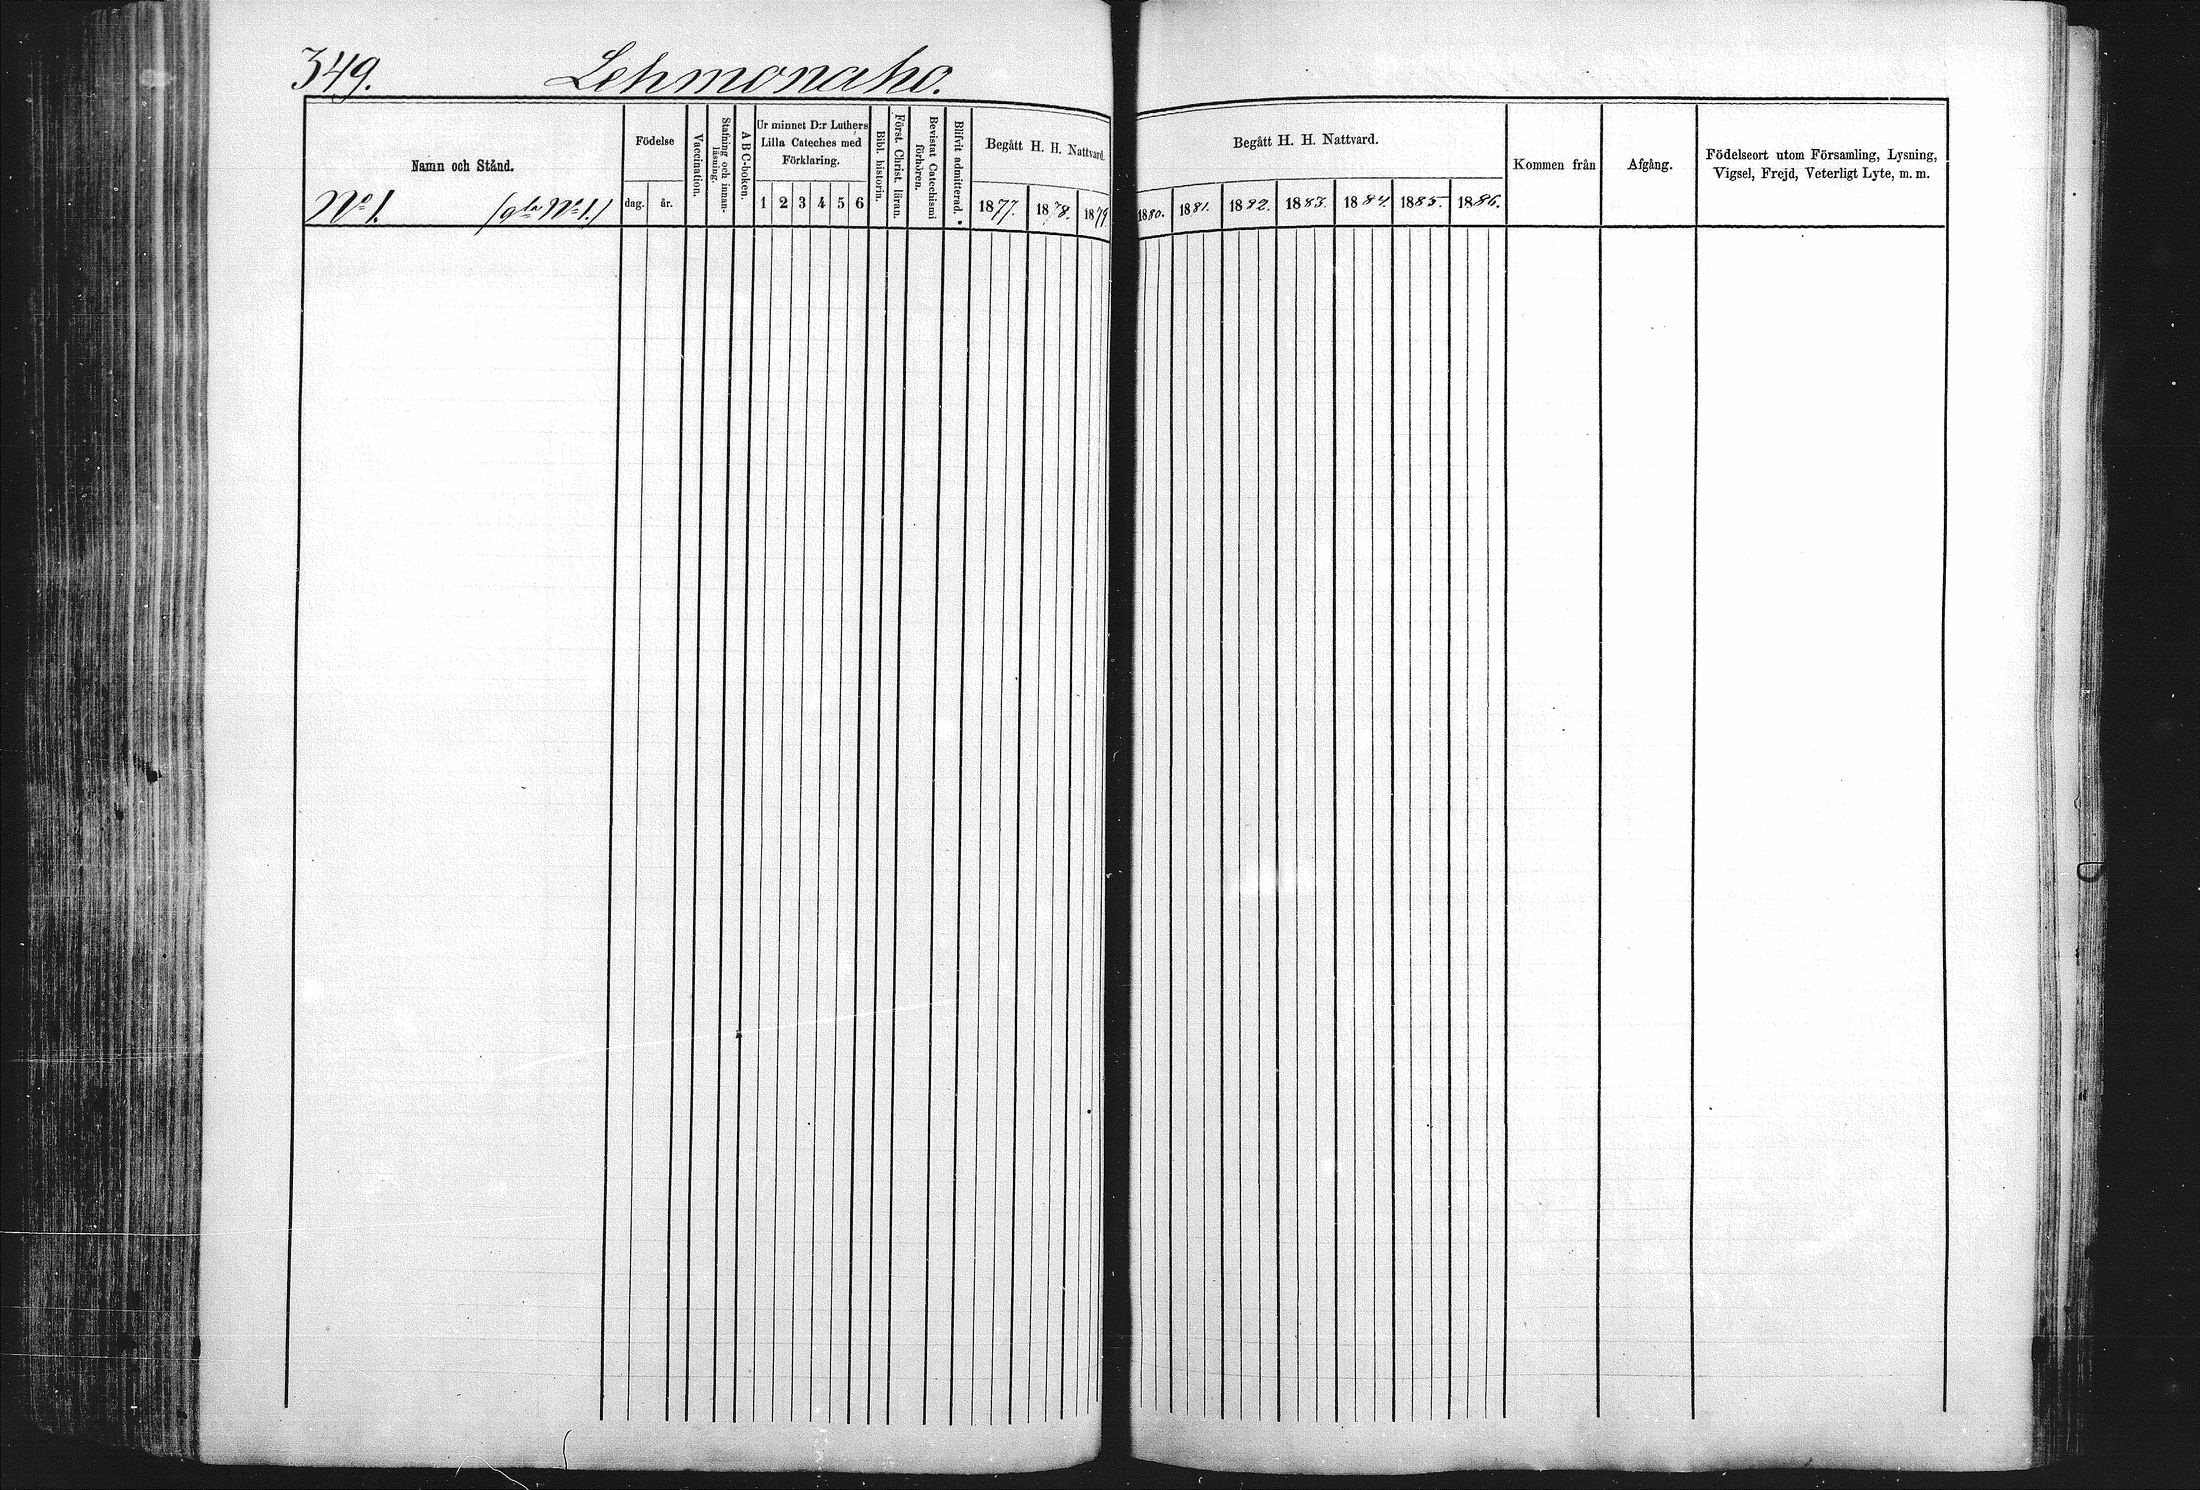 349. Lehmonaho.
Namn och Stånd.
No 1. (gla No 1.)
Födelse
dag. år.
Vaccination.
Stafning och innan-
läsning.
ABC-boken.
Ur minnet D:r Luthers
Lilla Cateches med
Förklaring.
1 2 3 4 5 6
Bibl. historia.
Först. Christ. läran.
Bevistat Catechismi
förhören.
Blifvit admitterad.
Begått H. H. Nattvard.
1877. 1878. 1879.
Begått H. H. Nattvard.
1880. 1881. 1882. 1883. 1884. 1885. 1886.
Kommen från
Afgång.
Födelseort utom Församling, Lysning,
Vigsel, Frejd, Veterligt Lyte, m. m.